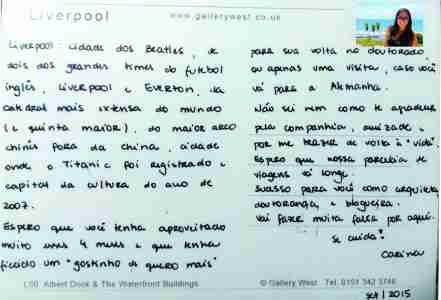 Liverpool
www.gallerywest.co.uk
Liverpool: cidade dos Beatles, de
dois dos grandes times do futebol
inglês, Liverpool e Everton, da
catedral mais extensa do mundo
(e quinta maior), do maior arco
chinês fora da China, cidade
onde o Titanic foi registrado e
capital da cultura do ano de
2007.
Espero que você tenha aproveitado
muito esses 4 meses e que tenha
ficado um "gostinho de quero mais"
para sua volta no doutorado,
ou apenas uma visita, caso você
vá para a Alemanha.
Não sei nem como te agradecer
pela companhia, amizade e
por me trazer de volta à "vida".
Espero que nossa parceria de
viagens vá longe.
Sucesso para você como arquiteta,
doutoranda, e blogueira.
Vai fazer muita falta por aqui.
Se cuida!
Carina
set / 2015
L50 Albert Dock & The Waterfront Buildings
© Gallery West Tel: 0151 342 3746